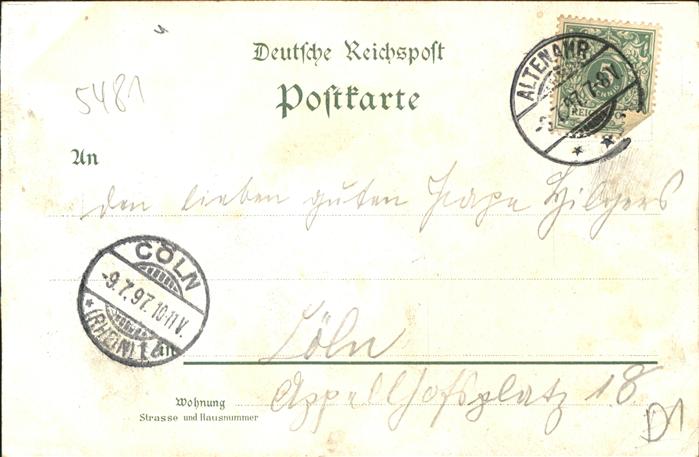 Deutsche Reichspost
Postkarte
5481
ALTENAHR
7-8N
REICHS
An
den lieben guten Papa Hilgers
CÖLN
-9.7.97.10-11V.
* (RHEIN) 1
in
Cöln
Wohnung
Strasse und Hausnummer
Appellhofsplatz 18
D1